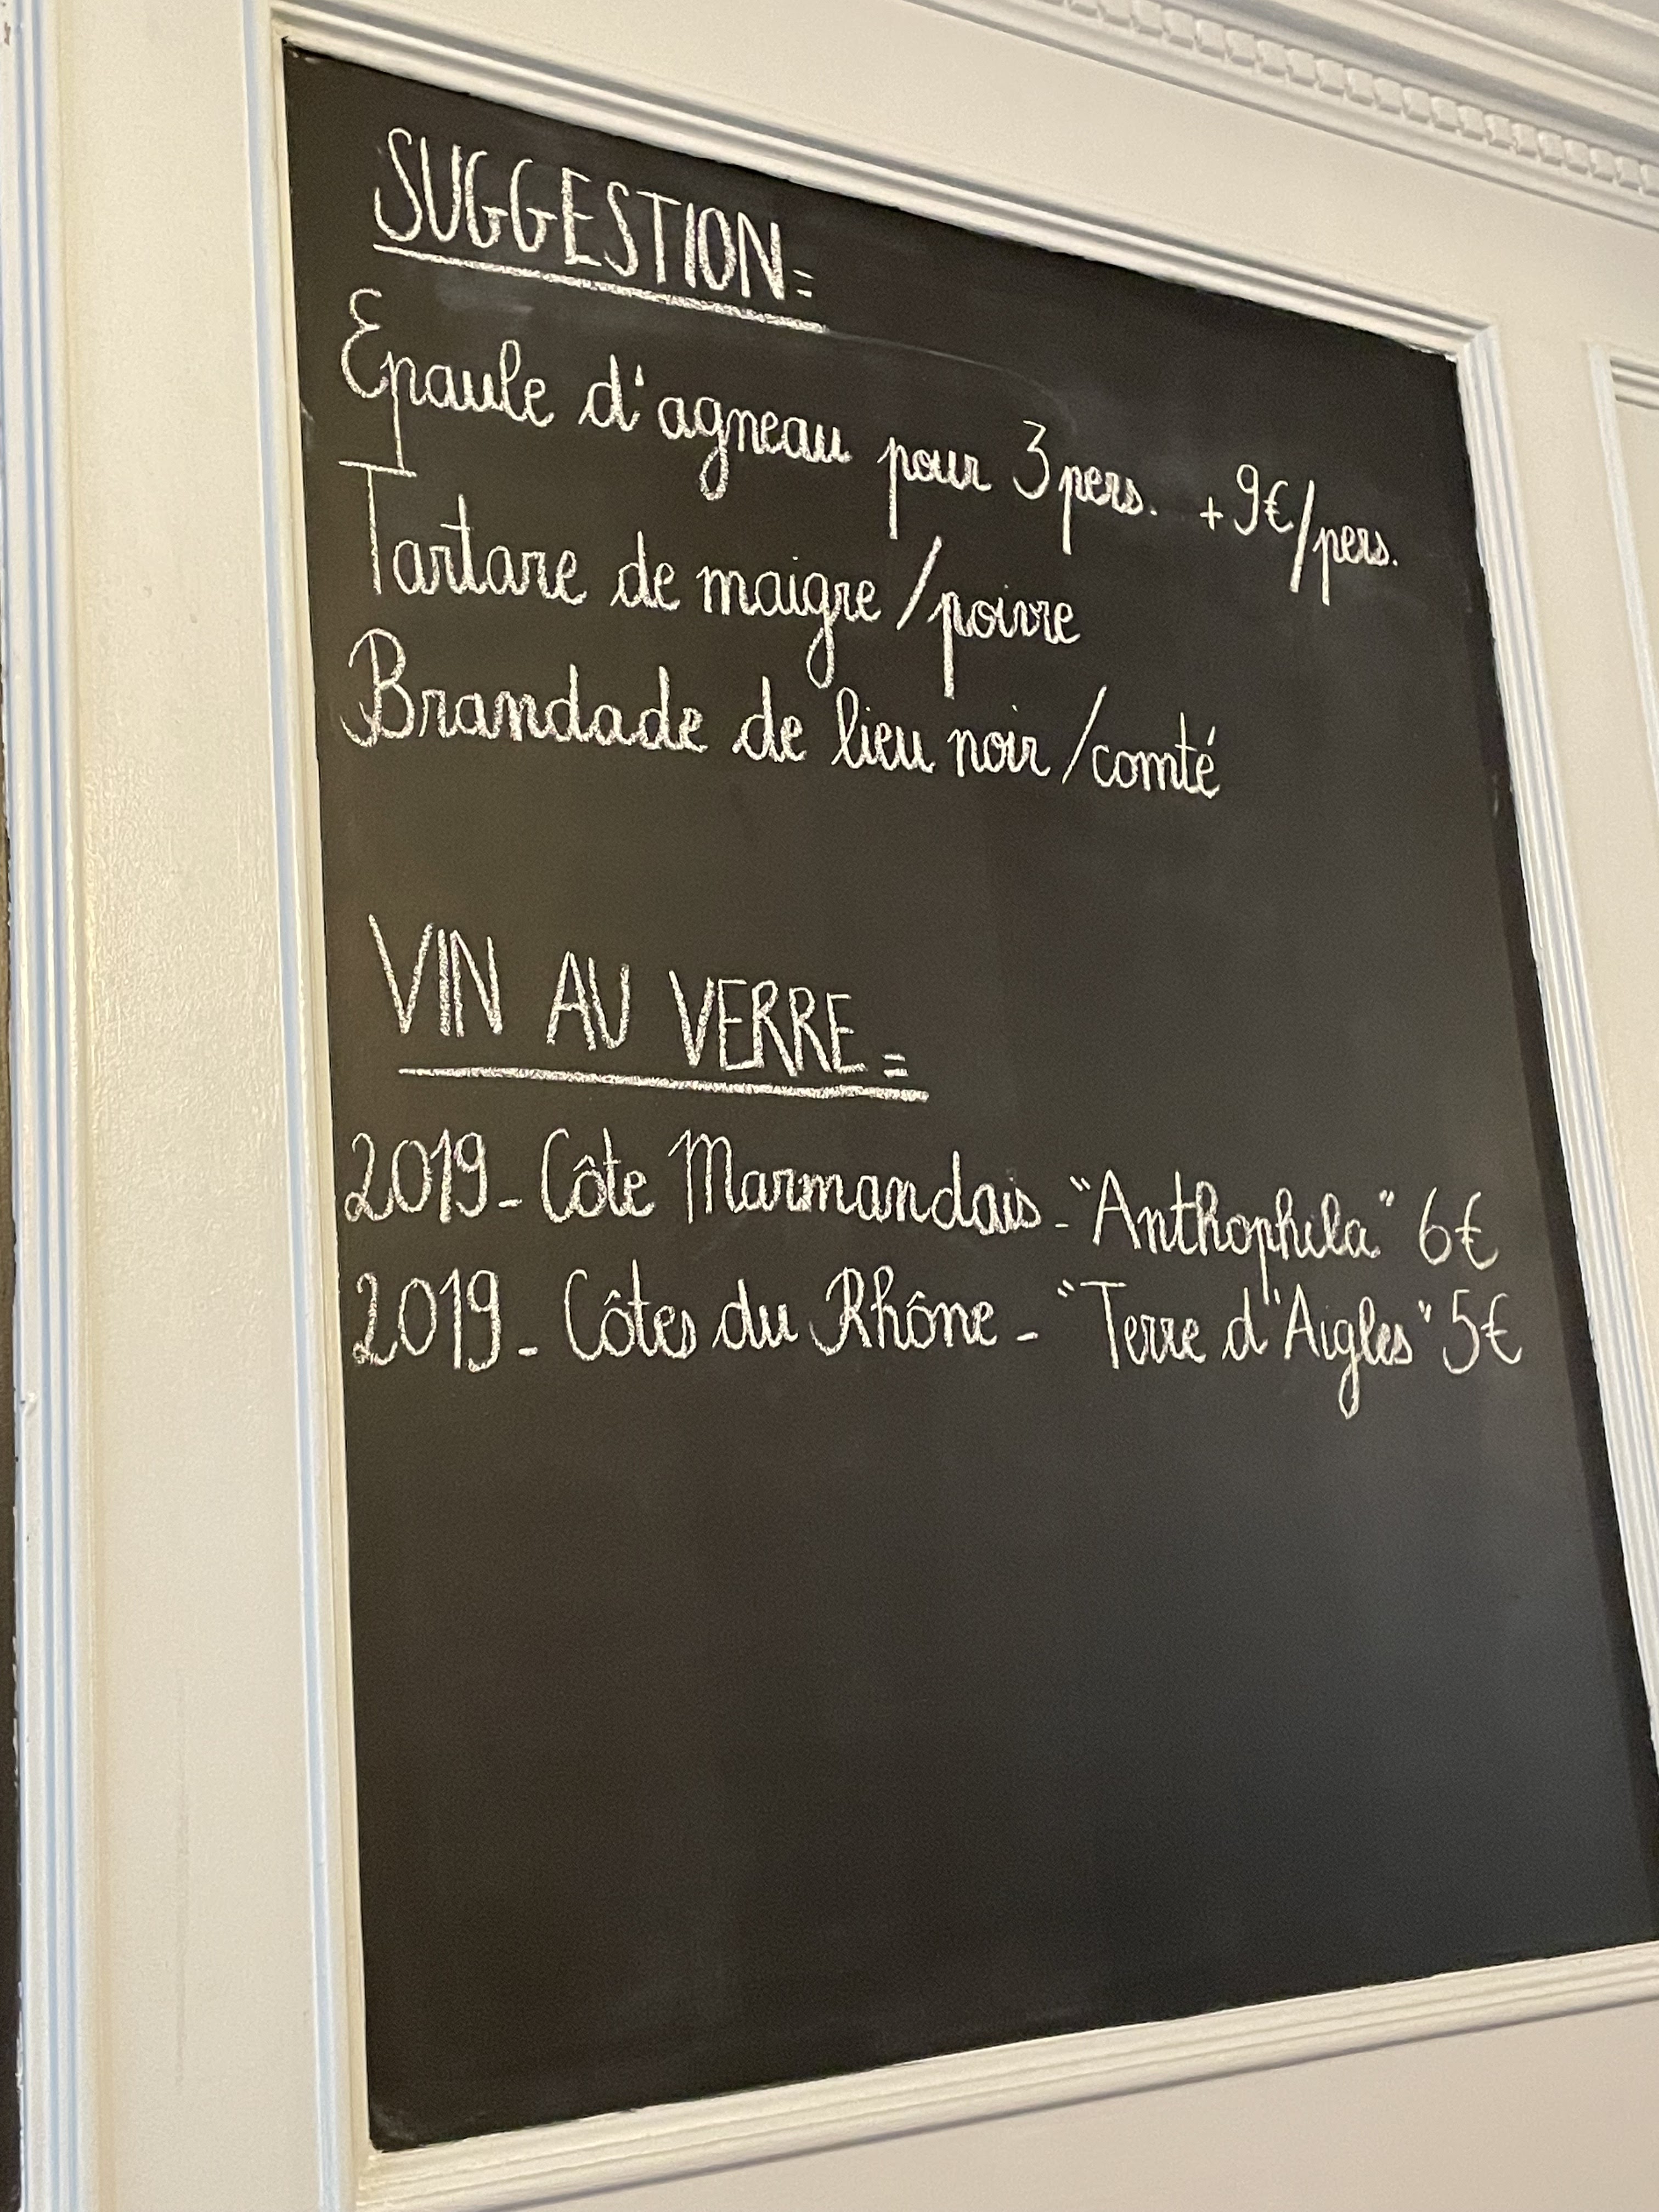 SUGGESTION=
Epaule d'agneau pour 3 pers. +9€/pers.
Tartare de maigre/poivre
Brandade de lieu noir/comté
VIN AU VERRE=
2019- Côte Marmandais-"Anthophila" 6€
2019- Côtes du Rhône - "Terre d'Aigles" 5€